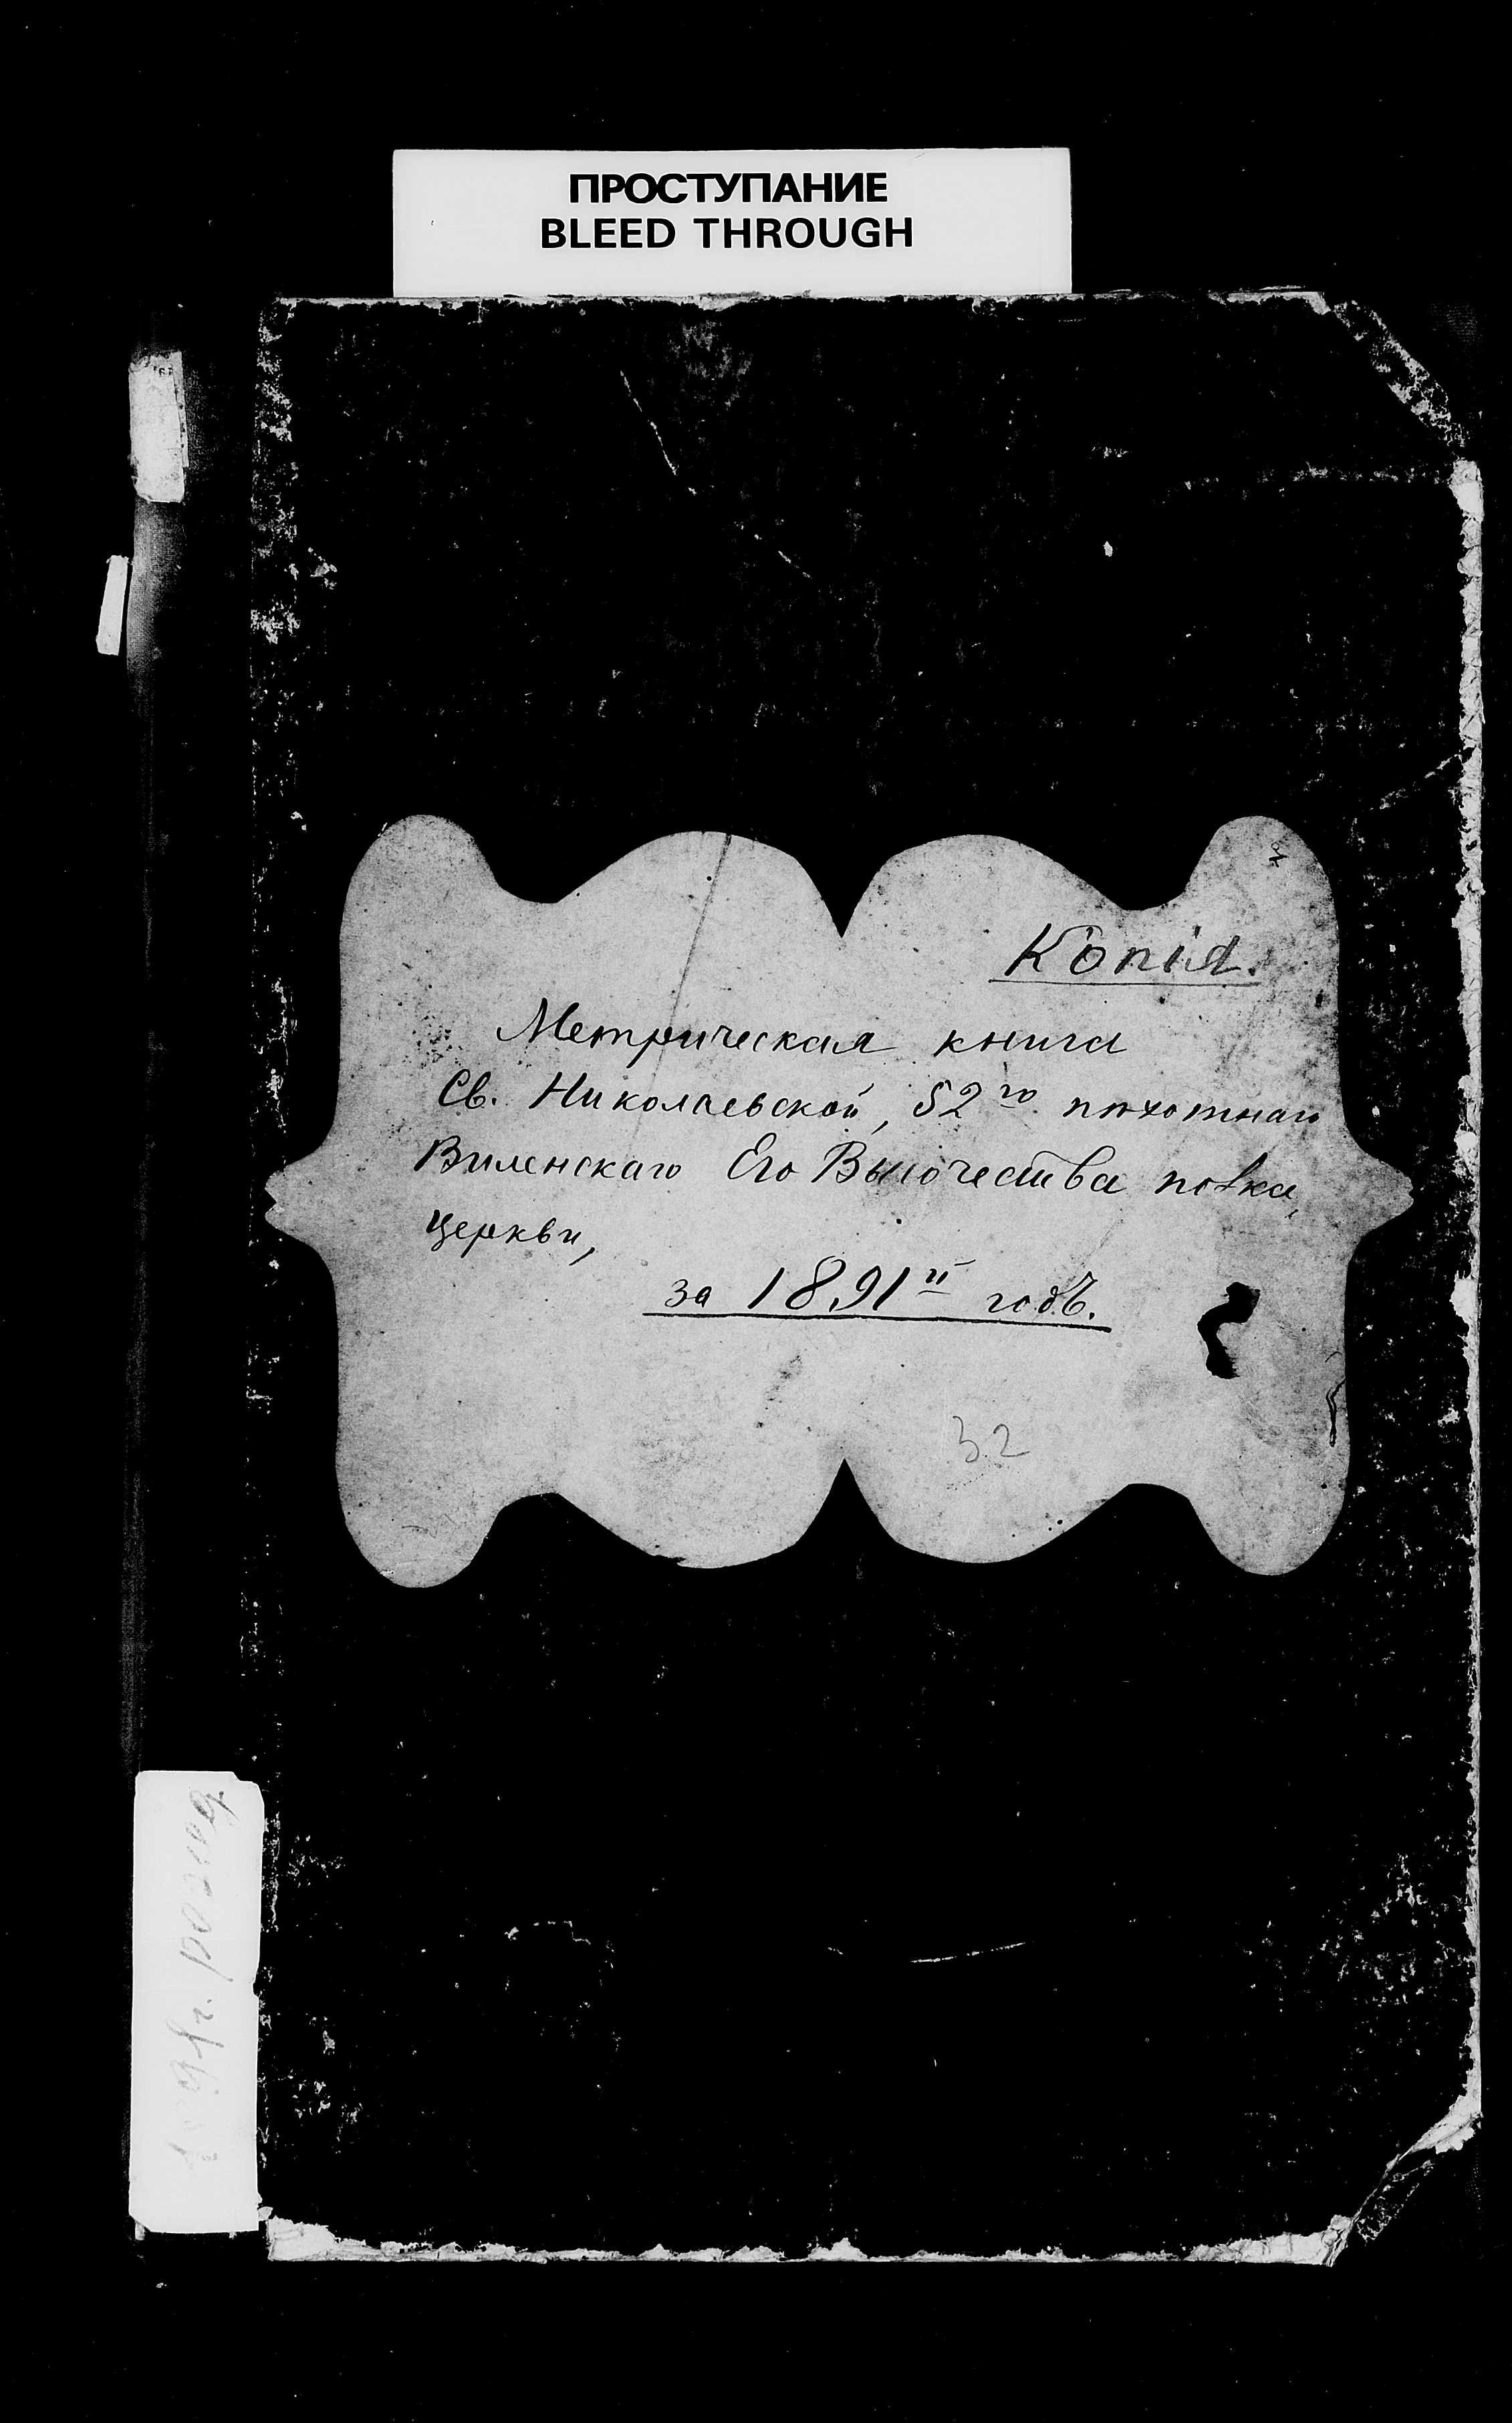 ПРОСТУПАНИЕ
BLEED THROUGH
Копія.
Метрическая книга
Св. Николаевской, 52го пѣхотнаго
Виленскаго Его Высочества полка,
церкви,
за 1891й годъ.
32